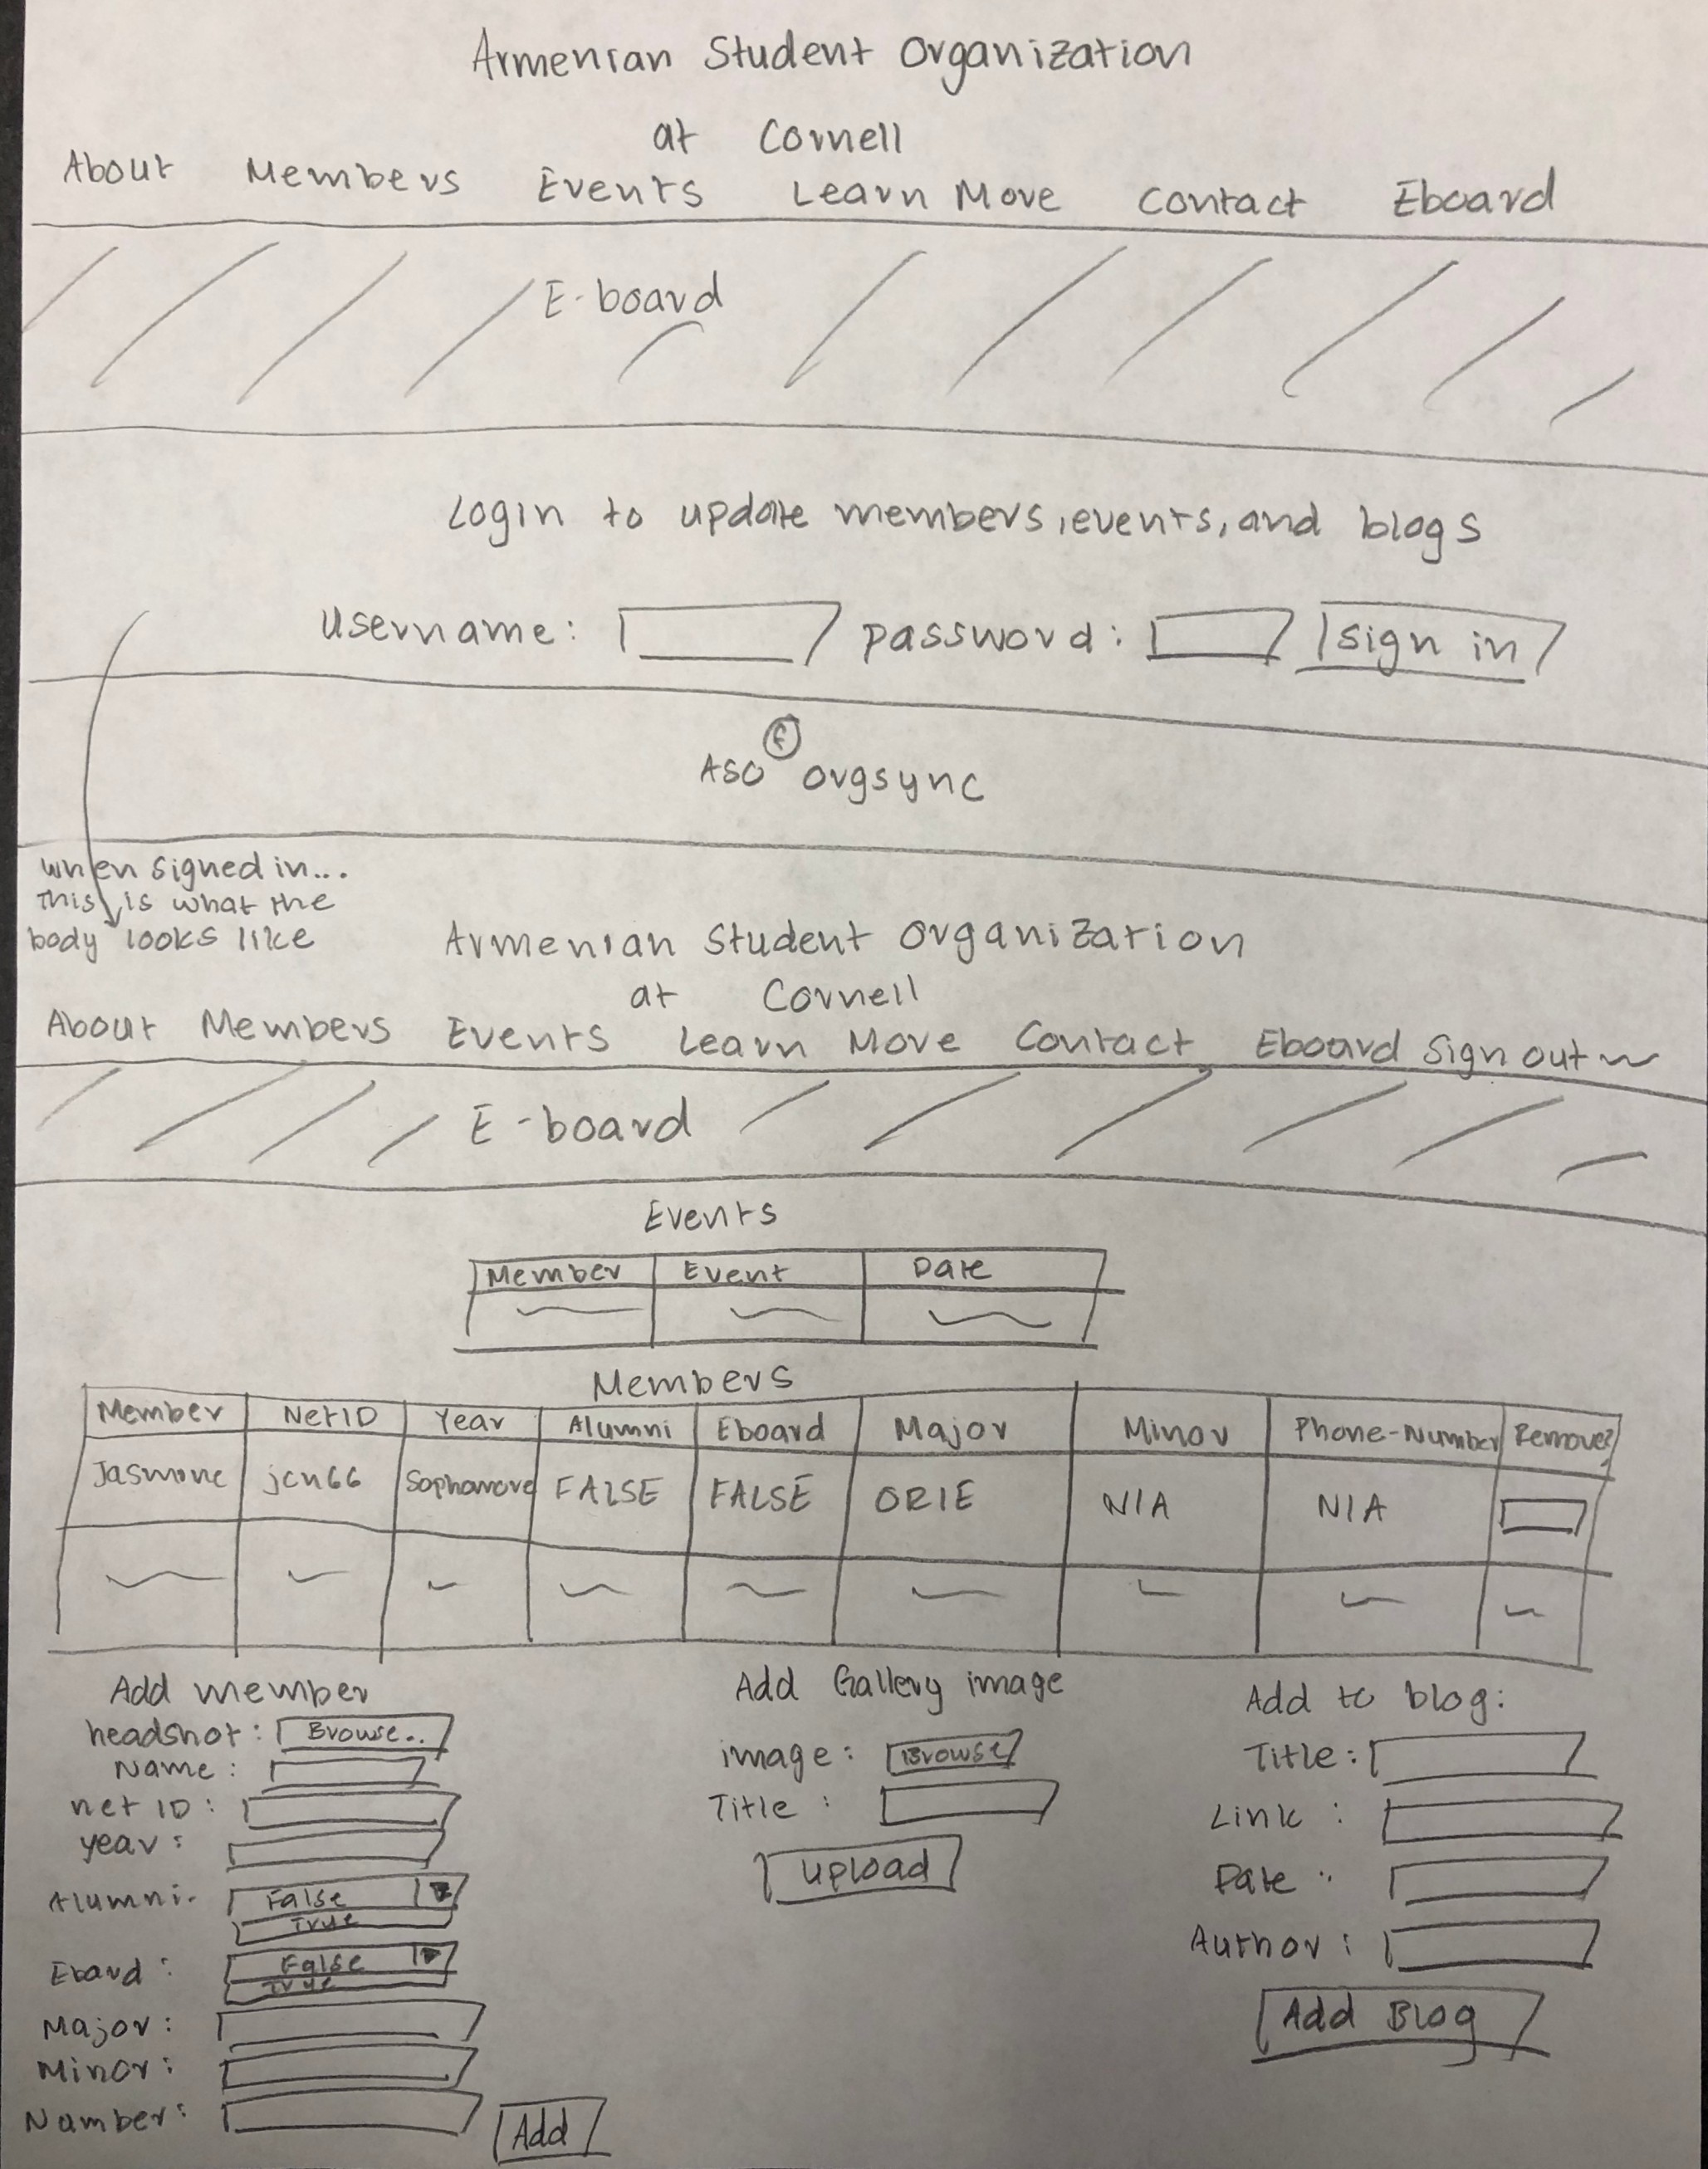 Armenian Student Organization
at Cornell
About Members Events Learn More Contact Eboard
E-board
Login to update members, events, and blogs
username: password: sign in
f
ASO orgsync
when signed in...
This is what the
body looks like
Armenian Student Organization
at Cornell
About Members Events Learn More Contact Eboard Sign out
E-board
Events
Member Event Date
Members
Member NetID Year Alumni Eboard Major Minor Phone-Number Remove?
Jasmine jcn66 Sophomore FALSE FALSE ORIE N/A N/A
Add member
headshot: Browse..
Name:
net ID:
year:
Alumni. False
True
Eboard: False
True
Major:
Minor:
Number:
Add
Add Gallery image
image: Browse
Title:
upload
Add to blog:
Title:
Link:
Date:
Author:
Add Blog